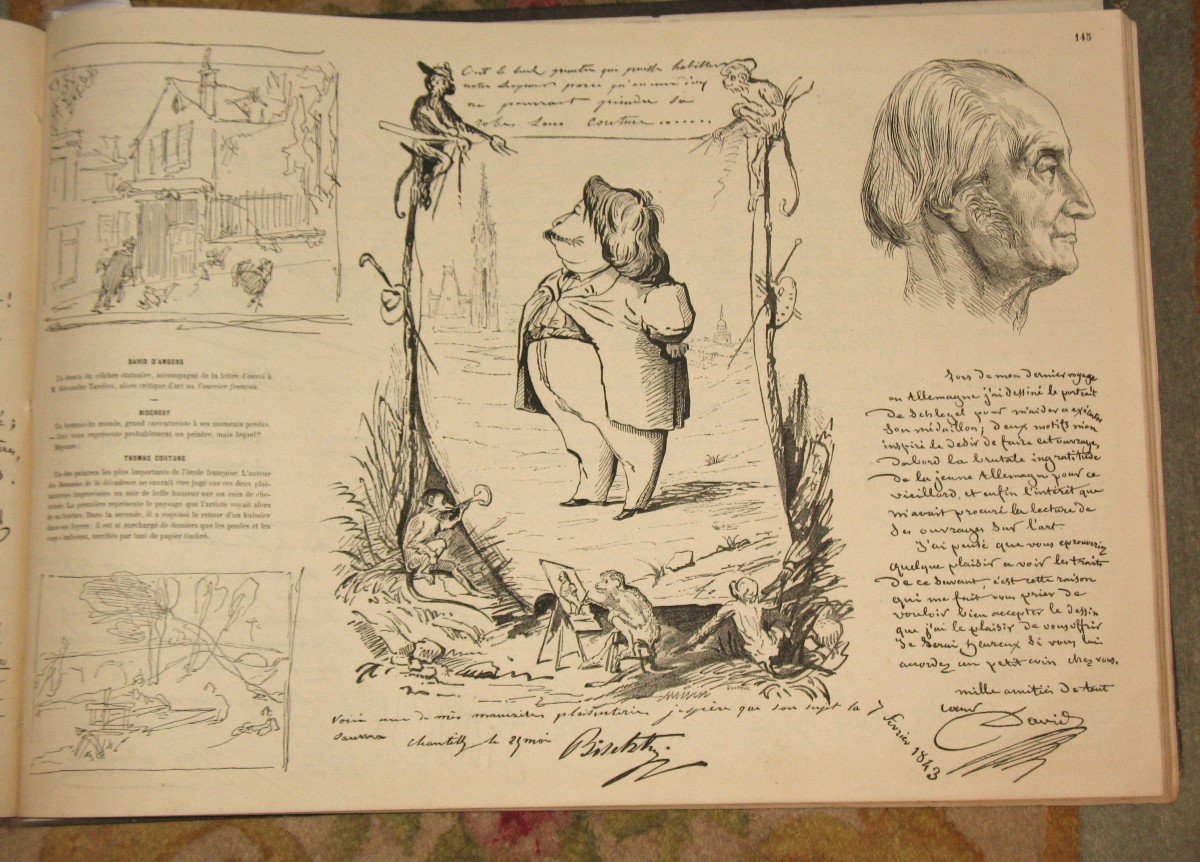 145
C'est le seul peintre qui puisse habiller
notre Seigneur parce qu'aucun
ne pourrait peindre sa
robe sans couture.......
DAVID D'ANGERS
Un dessin du célèbre statuaire, accompagné de la lettre d'envoi à
M. Alexandre Tardieu, alors critique d'art au Courrier français.
BISCHEKY
Un homme du monde, grand caricaturiste à ses moments perdus.
— Ceci vous représente probablement un peintre, mais lequel?
Réponse:
THOMAS COUTURE
Un des peintres les plus importants de l'école française. L'auteur
des Romains de la décadence ne saurait être jugé sur ces deux plai-
santeries improvisées un soir de belle humeur sur un coin de che-
minée. La première représente le paysage que l'artiste voyait alors
de sa fenêtre. Dans la seconde, il a esquissé le retour d'un huissier
dans ses foyers; il est si surchargé de dossiers que les poules et les
s'enfuient, terrifiés par tant de papier timbré.
Voici une de mes mauvaises plaisanteries j'espère que son sujet la
sauvera Chantilly le 29 mai
Lors de mon dernier voyage
en Allemagne j'ai dessiné le portrait
de Schlegel pour m'aider a exécuter
son médaillon; deux motifs m'on
inspiré le desir de faire cet ouvrage,
d'abord la brutale ingratitude
de la jeune Allemagne pour ce
vieillard, et enfin l'interêt que
m'avait procuré la lecture de
ses ouvrages sur l'art
J'ai pensé que vous eprouveriez
quelque plaisir a voir les traits
de ce savant, c'est cette raison
qui me fait vous prier de
vouloir bien accepter le dessin
que j'ai le plaisir de vous offrir
de serai heureux si vous lui
accordez un petit coin chez vous.
mille amitiés de tout
cœur
David
7 février 1843